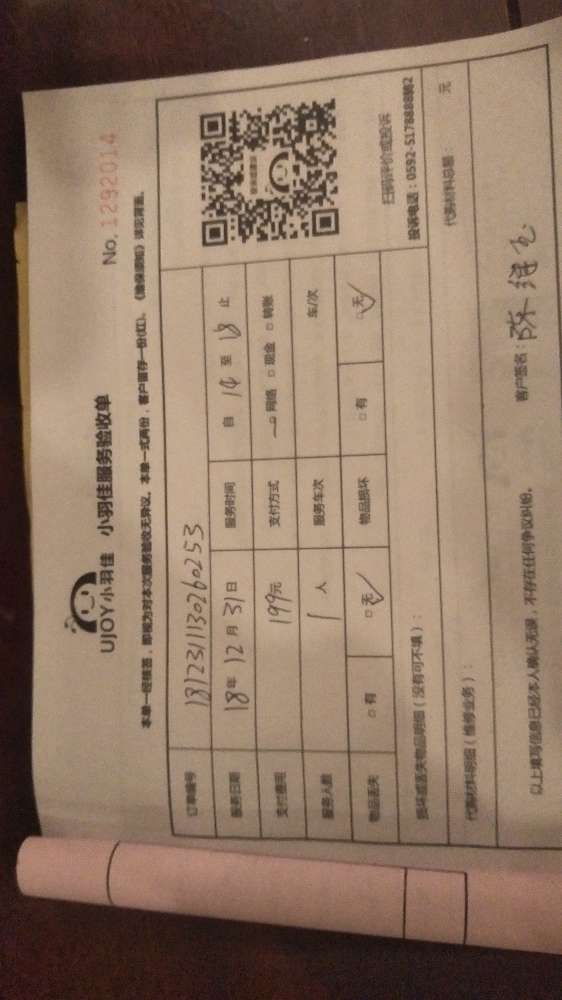 UJOY小羽佳 小羽佳服务验收单
No. 1292014
本单一经核签，即视为对本次服务验收无异议。本单一式两份，客户留存一份(红)。《维保须知》详见背面。
订单编号 1812311130260253
服务日期 18年12月31日 服务时间 自 14 至 18 止
支付费用 199元 支付方式 □网络 □现金 □转账
服务人数 1人 服务车次 车/次
物品丢失 □有 □无✓ 物品损坏 □有 □无✓
扫码评价或投诉
投诉电话：0592-5178888转2
损坏或丢失物品明细（没有可不填）：
代购材料明细（维修业务）： 代购材料总额： 元
以上填写信息已经本人确认无误，不存在任何争议纠纷。 客户签名：陈